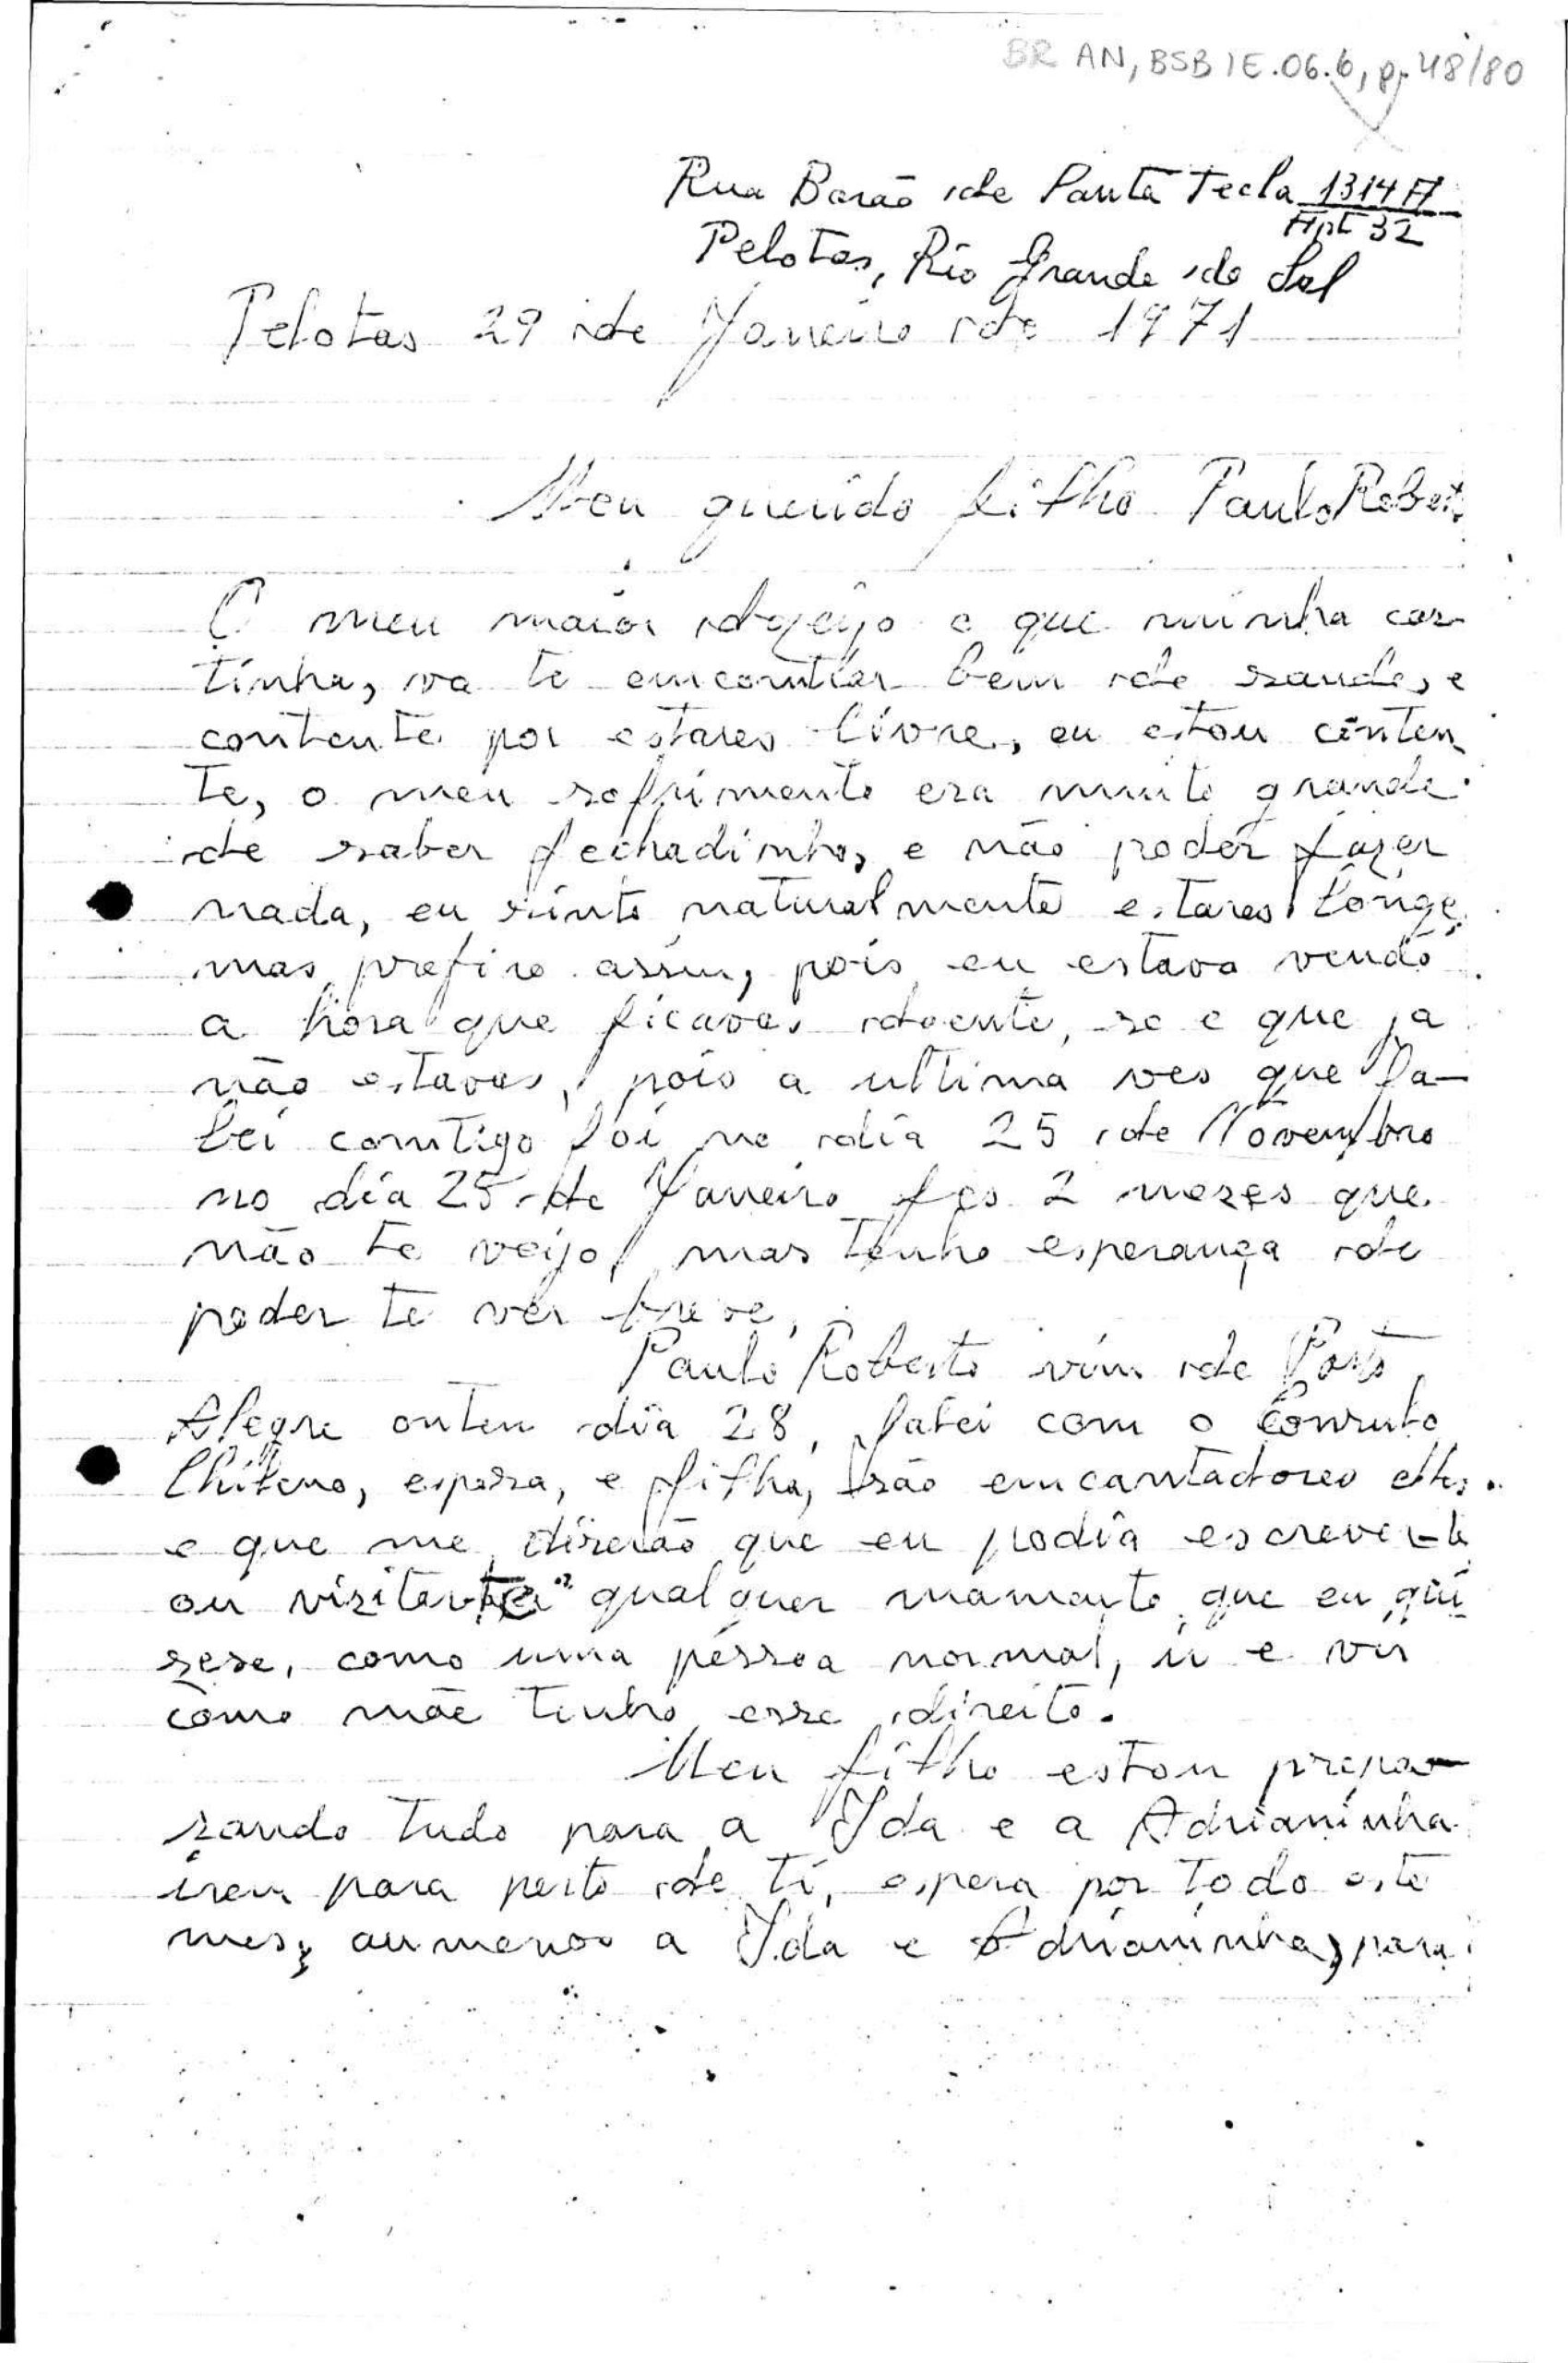 BR AN, BSB IE.06.6, p. 48/80
Rua Barão de Santa Tecla 1314 A
Apt 32
Pelotas, Rio Grande do Sul
Pelotas 29 de Janeiro de 1971
Meu querido filho Paulo Robert.
O meu maior dezeijo e que minha car-
tinha, va te emcontrar bem de saude, e
contente por estares livre, eu estou conten
te, o meu sofrimento era muito grande
de saber fechadinho, e não poder fazer
nada, eu sinto naturalmente estares longe
mas prefiro assim, pois eu estava vendo
a hora que ficavas doente, se e que ja
não estavas, pois a ultima ves que fa-
lei comtigo foi no dia 25 de Novembro
no dia 25 de Janeiro fes 2 mezes que
não te veijo, mas tenho esperança de
poder te ver breve.
Paulo Roberto vim de Porto
Alegre onten dia 28, falei com o Consulo
Chileno, espoza, e filha, são emcantadores elles
e que me diserão que eu podia escrever-te
ou visitar-te qualquer mamento que eu qui
sese, como uma pessoa normal, ir e vir
como mãe tenho esse direito.
Meu filho estou prepa-
rando tudo para a Ida e a Adrianinha
irem para perto de ti, espera por todo este
mes, aumenos a Ida e Adrianinha, para